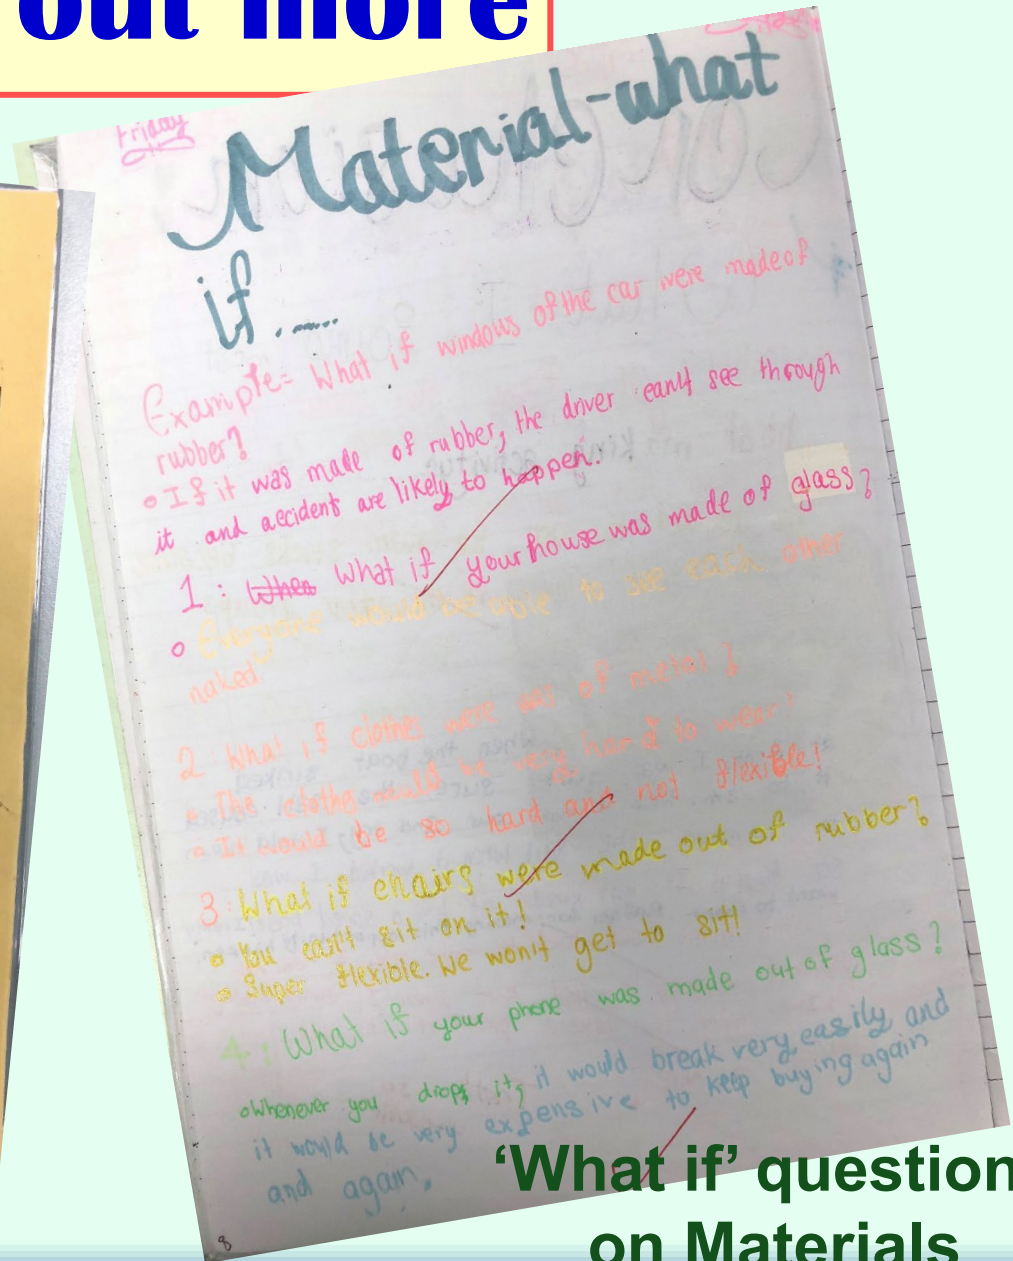 out more
Friday
Material-what
if.....
Example= What if windows of the car were made of
rubber?
If it was made of rubber, the driver can't see through
it and accident are likely to happen.
1: When What if your house was made of glass?
Everyone would be able to see each other
naked
2 What if clothes were out of metal?
The cloths would be very hard to wear!
It would be so hard and not flexible!
3: What if chairs were made out of rubber?
You can't sit on it!
Super flexible. We won't get to sit!
4: What if your phone was made out of glass?
Whenever you drops it, it would break very easily and
it would be very expensive to keep buying again
and again.
8
‘What if’ question
on Materials